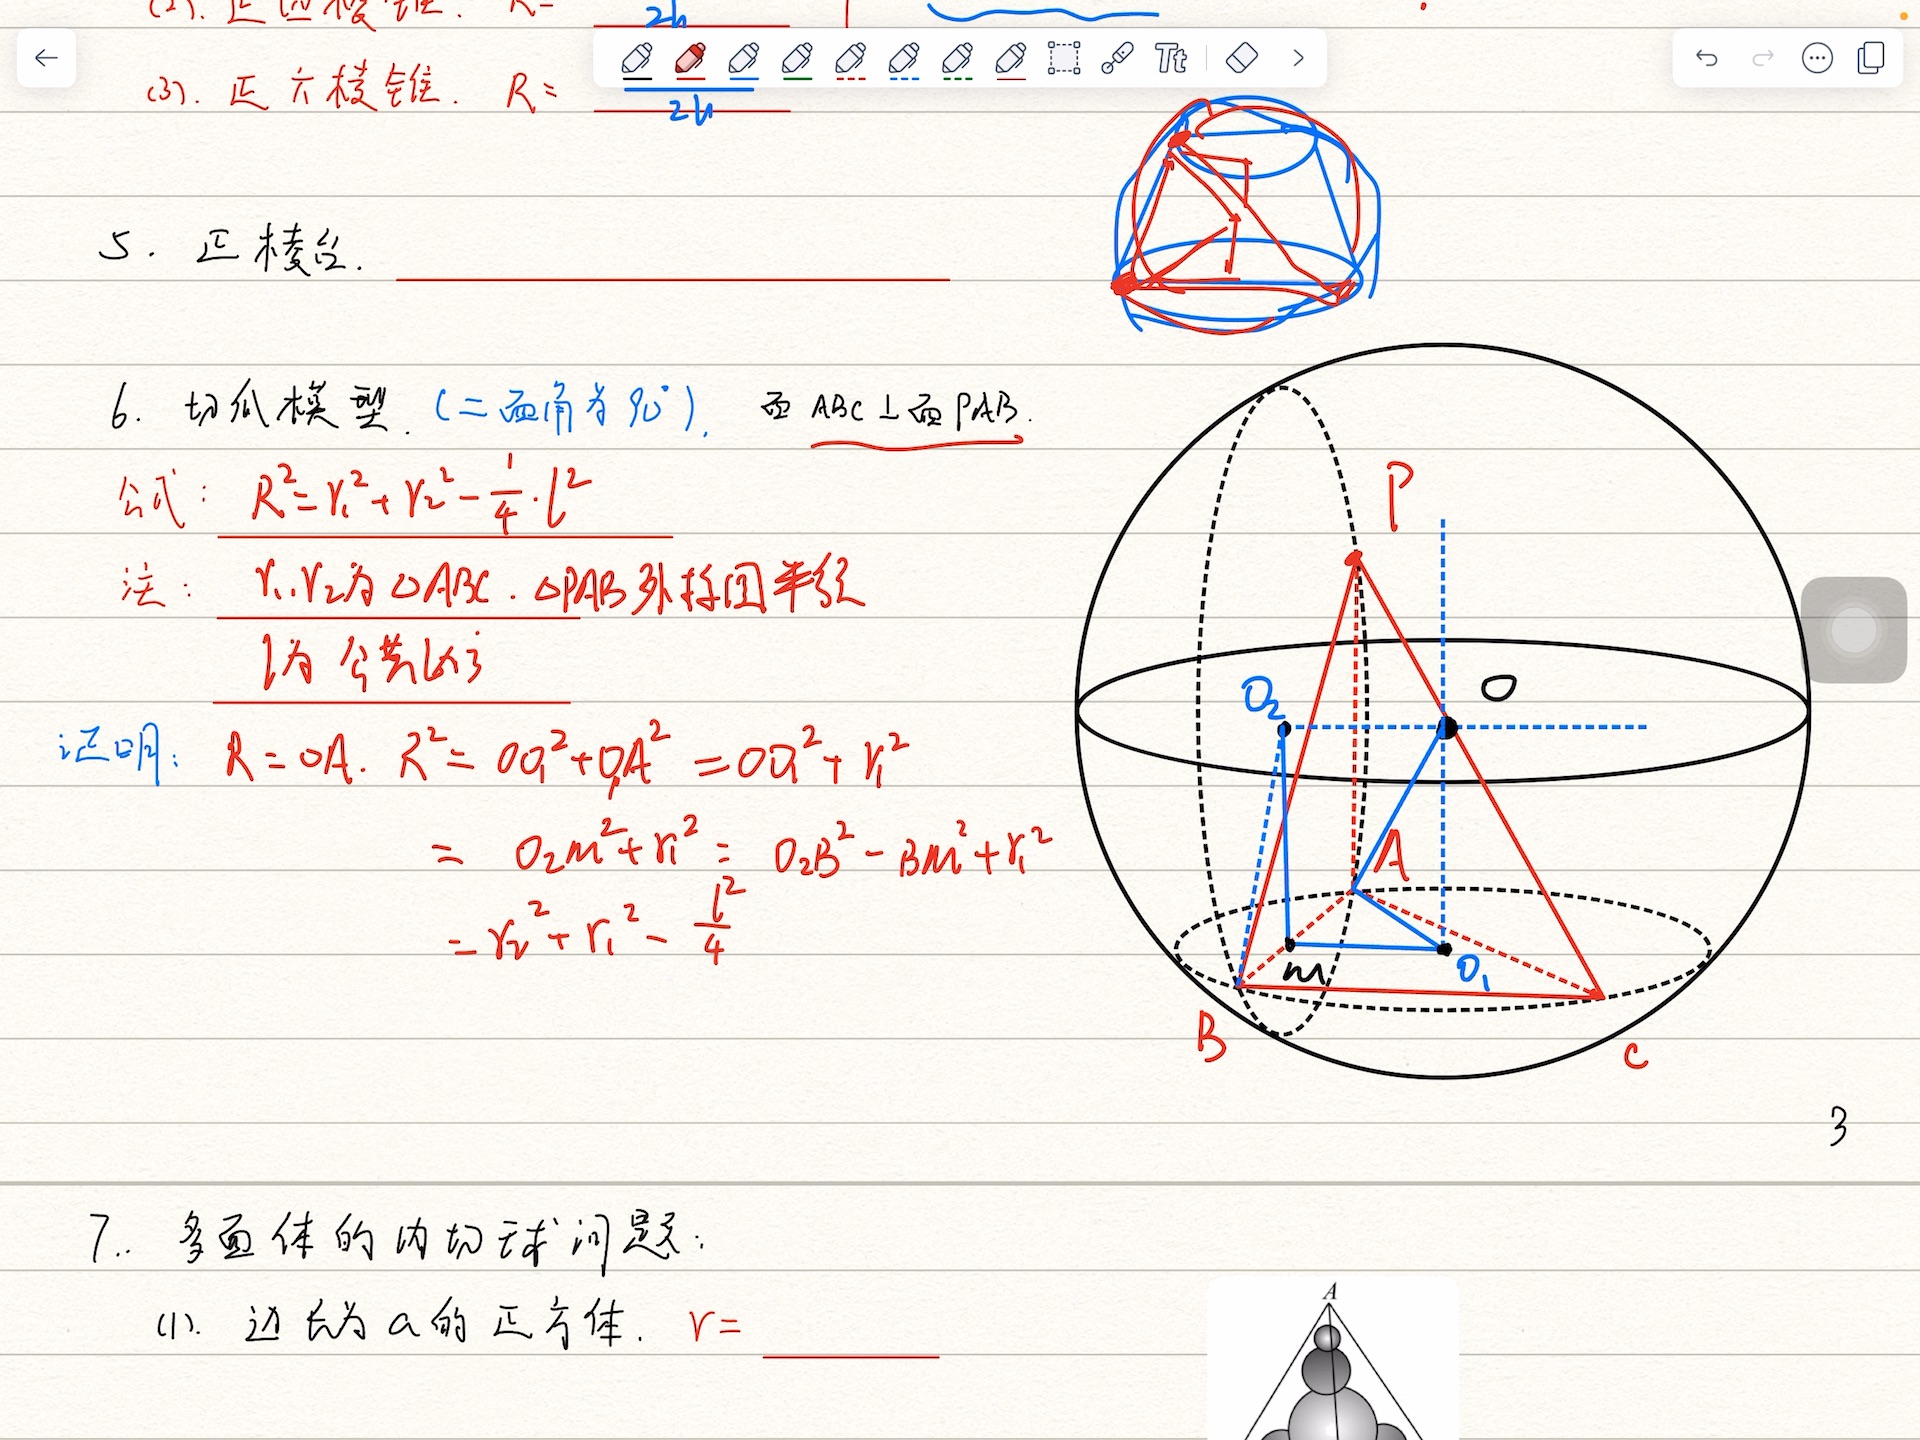 (2). 正四棱锥. R= 2h
(3). 正六棱锥. R= 2h
5. 正棱台.
6. 切瓜模型. (二面角为90°). 面ABC⊥面PAB.
公式: R²=r₁²+r₂²-1/4·l²
注: r₁.r₂为△ABC.△PAB外接圆半径
l为公共边
证明: R=OA. R²=OO₁²+O₁A²=OO₁²+r₁²
=O₂M²+r₁²=O₂B²-BM²+r₁²
=r₂²+r₁²-l²/4
P
O₂
O
A
M
O₁
B
C
3
7.. 多面体的内切球问题:
(1). 边长为a的正方体. r=
A
Tt